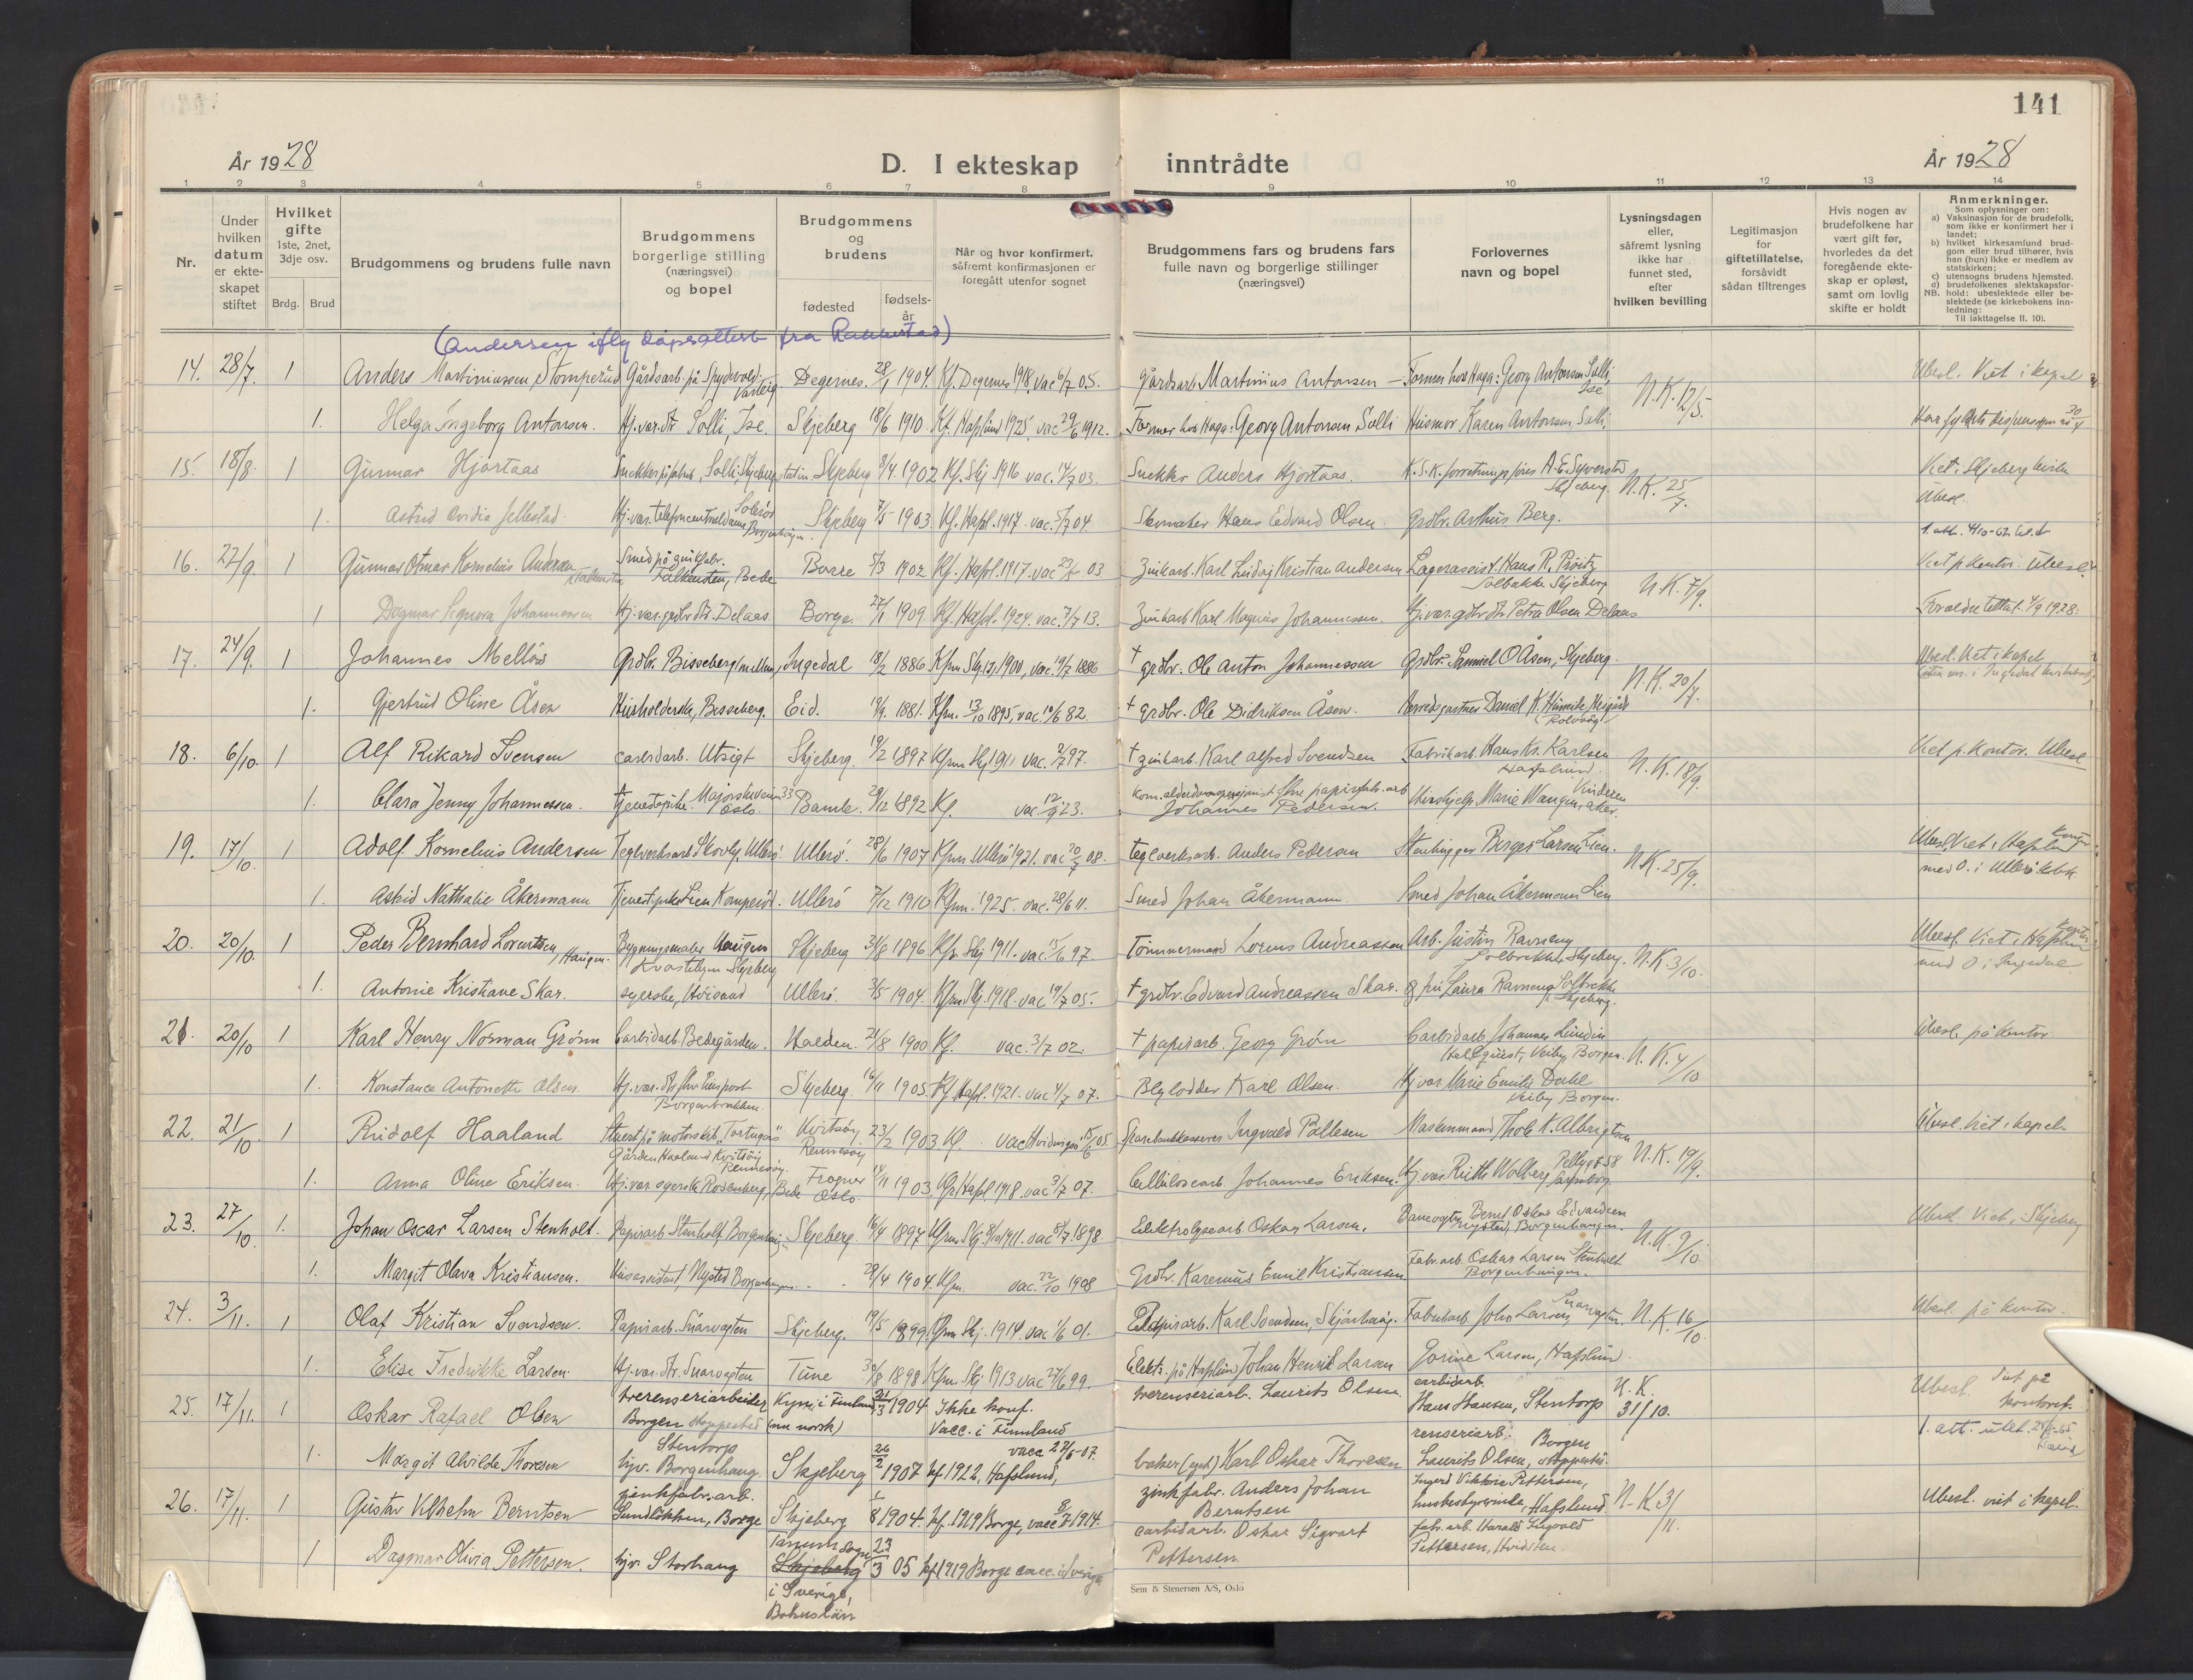 141
År 1928
D. I ekteskap inntrådte
År 1928
1 2 3 4 5 6 7 8 9 10 11 12 13 14
Nr.
Under hvilken datum er ekteskapet stiftet
Hvilket gifte 1ste, 2net, 3dje osv.
Brdg. Brud
Brudgommens og brudens fulle navn
Brudgommens borgerlige stilling (næringsvei) og bopel
Brudgommens og brudens
fødested
fødselsår
Når og hvor konfirmert, såfremt konfirmasjonen er foregått utenfor sognet
Brudgommens fars og brudens fars fulle navn og borgerlige stillinger (næringsvei)
Forlovernes navn og bopel
Lysningsdagen eller, såfremt lysning ikke har funnet sted, efter hvilken bevilling
Legitimasjon for giftetillatelse, forsåvidt sådan tiltrenges
Hvis nogen av brudefolkene har vært gift før, hvorledes da det foregående ekteskap er opløst, samt om lovlig skifte er holdt
Anmerkninger.
Som oplysninger om:
a) Vaksinasjon for de brudefolk, som ikke er konfirmert her i landet;
b) hvilket kirkesamfund brudgom eller brud tilhører, hvis han (hun) ikke er medlem av statskirken;
c) utensogns brudens hjemsted.
d) brudefolkenes slektskapsforhold: ubeslektede eller beslektede (se kirkebokens innledning:
NB. Til iakttagelse II. 10).
(Andersen iflg dåpsattest fra Rakkestad)
14. 28/7. 1 Anders Martiniussen, Stomperud Gårdsarb. på Spydevold, Varteig Degernes. 28/1 1904. Kf. Degernes 1918, vac 6/7 05. Gårdsarb. Martinius Antonsen Former hos Haga: Georg Antonsen Solli, Ise N.K. 12/5. Ubesl. Viet i kapel
1. Helga Ingeborg Antonsen. Hj. vær. dtr Solli, Ise. Skjeberg 18/6 1910 Kf. Hafslund 1925, vac 29/6 1912. Former hos Haga: Georg Antonsen Solli Husmor Karen Antonsen Solli.
15. 18/8. 1 Gunnar Hjortaas Snekker på fabrik, Solli, Skjeberg station Skjeberg 8/4 1902 Kf. Skj 1916 vac. 14/7 03. Snekker Anders Hjortaas. K.S.K. forretningsfører A. E. Syverstad Skjeberg. N.K. 25/7. Viet i Skjeberg kirke Ubesl.
1. Astrid Ovidia Jellestad. Hj. vær. telefoncentraldame Borgenhaugen. Skjeberg 7/5 1903. Kf. Hafsl. 1917. vac. 5/7 04 Skomaker Hans Edvard Olsen. Grdbr. Arthur Berg.
16. 22/9. 1 Gunnar Otmar Kornelius Andersen Falkensten Smed på zinkfabr. Falkensten, Bede Borre 5/3 1902 Kf. Hafsl. 1917. Zinkarb. Karl Ludvig Kristian Andersen Lagerassist. Hans R. Solbakke Skjeberg N.K. 7/9. Viet p. kontor. Ubesl.
1 Dagmar Signora Johannessen Hj. vær. grdbr. dtr. Delaas Borge. 27/1 1909. Kf. Hafsl. 1924. vac. 7/7 13. Zinkarb Karl Magnus Johannessen. Hj. vær. grdbr. dtr Petra Olsen Delaas Foreldre tillat. 4/9 1928.
17. 24/9. 1 Johannes Melløs Grdbr. Bisseberg mellem, Ingedal 18/2 1886 Kfm Skj. 1900, vac. 19/7 1886 † grdbr. Ole Anton Johannessen Grdbr. Samuel O Åsen, Skjeberg. N.K. 20/7. Ubesl. Viet i kapel
1. Gjertrud Oline Åsen Husholderske, Bisseberg. Eid. 19/9. 1881. Kfm. 13/10 1895, vac. 10/6 82. † grdbr. Ole Didriksen Åsen. Herredsgartner Daniel K. (Rolvsøy)
18. 6/10. 1 Alf Rikard Svensen carbidarb. Utsigt Skjeberg. 19/2 1897 Kfm Skj 1911 vac. 2/7 97. † zinkarb. Karl Alfred Svendsen Fabrikarb. Hans Kr. Karlsen Hafslund. N.K. 18/9. Viet p. kontor. Ubesl
1. Clara Jenny Johannessen. Tjenestepike. Majorstuveien 33 Oslo. Bamle. 29/12 1892 Kf. vac. 12/9 23. Johannes Pedersen. Hushjelp Marie Waugen, Vinderen Aker.
19. 17/10. 1 Adolf Kornelius Andersen Teglverksarb. Skovly, Ullerø. Ullerø. 28/6 1907 Kfm Ullerø 1921. vac 20/7 08. Teglverksarb. Anders Pedersen Stenhugger Birger Larsen Lien. N.K. 25/9.
1. Astrid Nathalie Åkermann Tjenestepike Lien Komperød. Ullerø 7/12 1910 Kfm. 1925. vac. 28/6 11. Smed Johan Åkermann. Smed Johan Åkermann Lien
20. 20/10. 1 Peder Bernhard Lorentsen, Haugen. Bygningsmaler Haugen Skjeberg Skjeberg 31/8 1896 Kfm Skj 1911. vac. 15/6 97. Tømmermand Lorens Andreassen Arb. Justin Ravneng Solbrekke, Skjeberg. N.K. 3/10.
1. Antonie Kristiane Skar. syerske, Høisand Ullerø. 3/5 1904. Kfm Skj. 1918. vac 19/7 05. † grdbr. Edvard Andreassen Skar. & fru Laura Ravneng Solbrekke Skjeberg.
21. 20/10 1 Karl Henry Norman Grønn Carbidarb. Bedegården. Halden. 21/8 1900 Kf. vac. 3/7 02. † papirarb. Georg Grøn Carbidarb. Johannes Lundin Hallqvist, Veiby, Borgen. N.K. 4/10 Ubesl. på kontor
1. Konstance Antonette Olsen. Skjeberg. 16/11 1905. Kf. Hafsl. 1921. vac 4/7 07. Blylodder Karl Olsen. Hj vær. Marie Emilie Dahl Veiby Borgen.
22. 21/10 1 Ridolf Haaland Stuert på motorskib. "Tortugas" Gården Haaland Kvitsøy Rennesøy. Kvitsøy Rennesøy 23/2 1903 Kf. Sparebankkasserer Ingvald Pallesen Maskinmand Thole K. Albrigtsen N.K. 19/9. Ubesl. Viet i kapel.
1. Anna Oline Eriksen. Hj. vær. syerske Rosenberg, Bede Frogner Oslo 14/11 1903. Kf Hafsl 1918. vac 3/7 07. Cellulosearb Johannes Eriksen. Hj. vær. Ruth Wolberg Sarpsborg
23. 27/10 1. Johan Oscar Larsen Stenholt. Papirarb Stenholt, Borgenhaugen Skjeberg. 16/4 1897 Kfm Skj. 8/10 1911. vac 8/7 1898 Elektrolysearb Oskar Larsen. Banevogter Bernt Oskar Edvardsen Nysted, Borgenhaugen. N.K. 9/10. Ubesl. Viet i Skjeberg
1. Margit Olava Kristiansen. Husassistent, Nysted Borgenhaugen. 28/4 1904. Kfm. vac. 22/10 1908 Grdbr. Karenius Emil Kristiansen Fabr. arb. Oskar Larsen Stenholt Borgenhaugen.
24. 3/11. 1 Olaf Kristian Svendsen. Papirarb. Snarvegten Skjeberg. 19/5 1899. Kfm Skj. 1914 vac 1/6 01. Papirarb. Karl Svendsen, Fabrikarb. John Larsen, Snarvegten. N.K. 16/10. Ubesl. på kontor.
1. Elise Fredrikke Larsen. Hj. vær. dtr. Snarvegten Tune 30/8 1898 Kfm. Skj 1913 vac 27/6 99. Elektr. på Hafslund Johan Henrik Larsen Gorine Larsen, Hafslund.
25. 17/11. 1 Oskar Rafael Olsen Borgen (nu norsk) Kymi i Finland 21/3 1904 Ikke konf. Vacc. i Finnland Laurits Olsen. carbidarb. Hans Hansen, Stentorp N.K. 31/10. Ubesl. Viet på kontoret.
1. Margit Alvilde Thoresen Stentorp hjv. Borgenhaug. Skjeberg 26/2 1907 kf. 1922, Hafslund, vacc 27/6-07. baker (egen) Karl Oskar Thoresen renseriarb. Borgen Laurits Olsen,
26. 17/11. 1 Gustav Vilhelm Berntsen zinkfabr. arb. Sundløkken, Borge Skjeberg 1/8 1904. kf. 1919 Borge, vacc 8/7 1914. zinkfabr. Anders Johan Berntsen Ingerd Viktoria Pettersen, husbestyrerinde, Hafslund. N-K 3/11. Ubesl. viet i kapel.
1 Dagmar Olivia Pettersen. hjv. Storhaug Tanum sogn Skjeberg i Sverige, Bohuslän 23/3 05 kf 1919 Borge vacc. i Sverige carbidarb. Oskar Sigvart Pettersen. fabr. arb. Harald Sigvald Pettersen, Hvidsten.
Sem & Stenersen A/S, Oslo